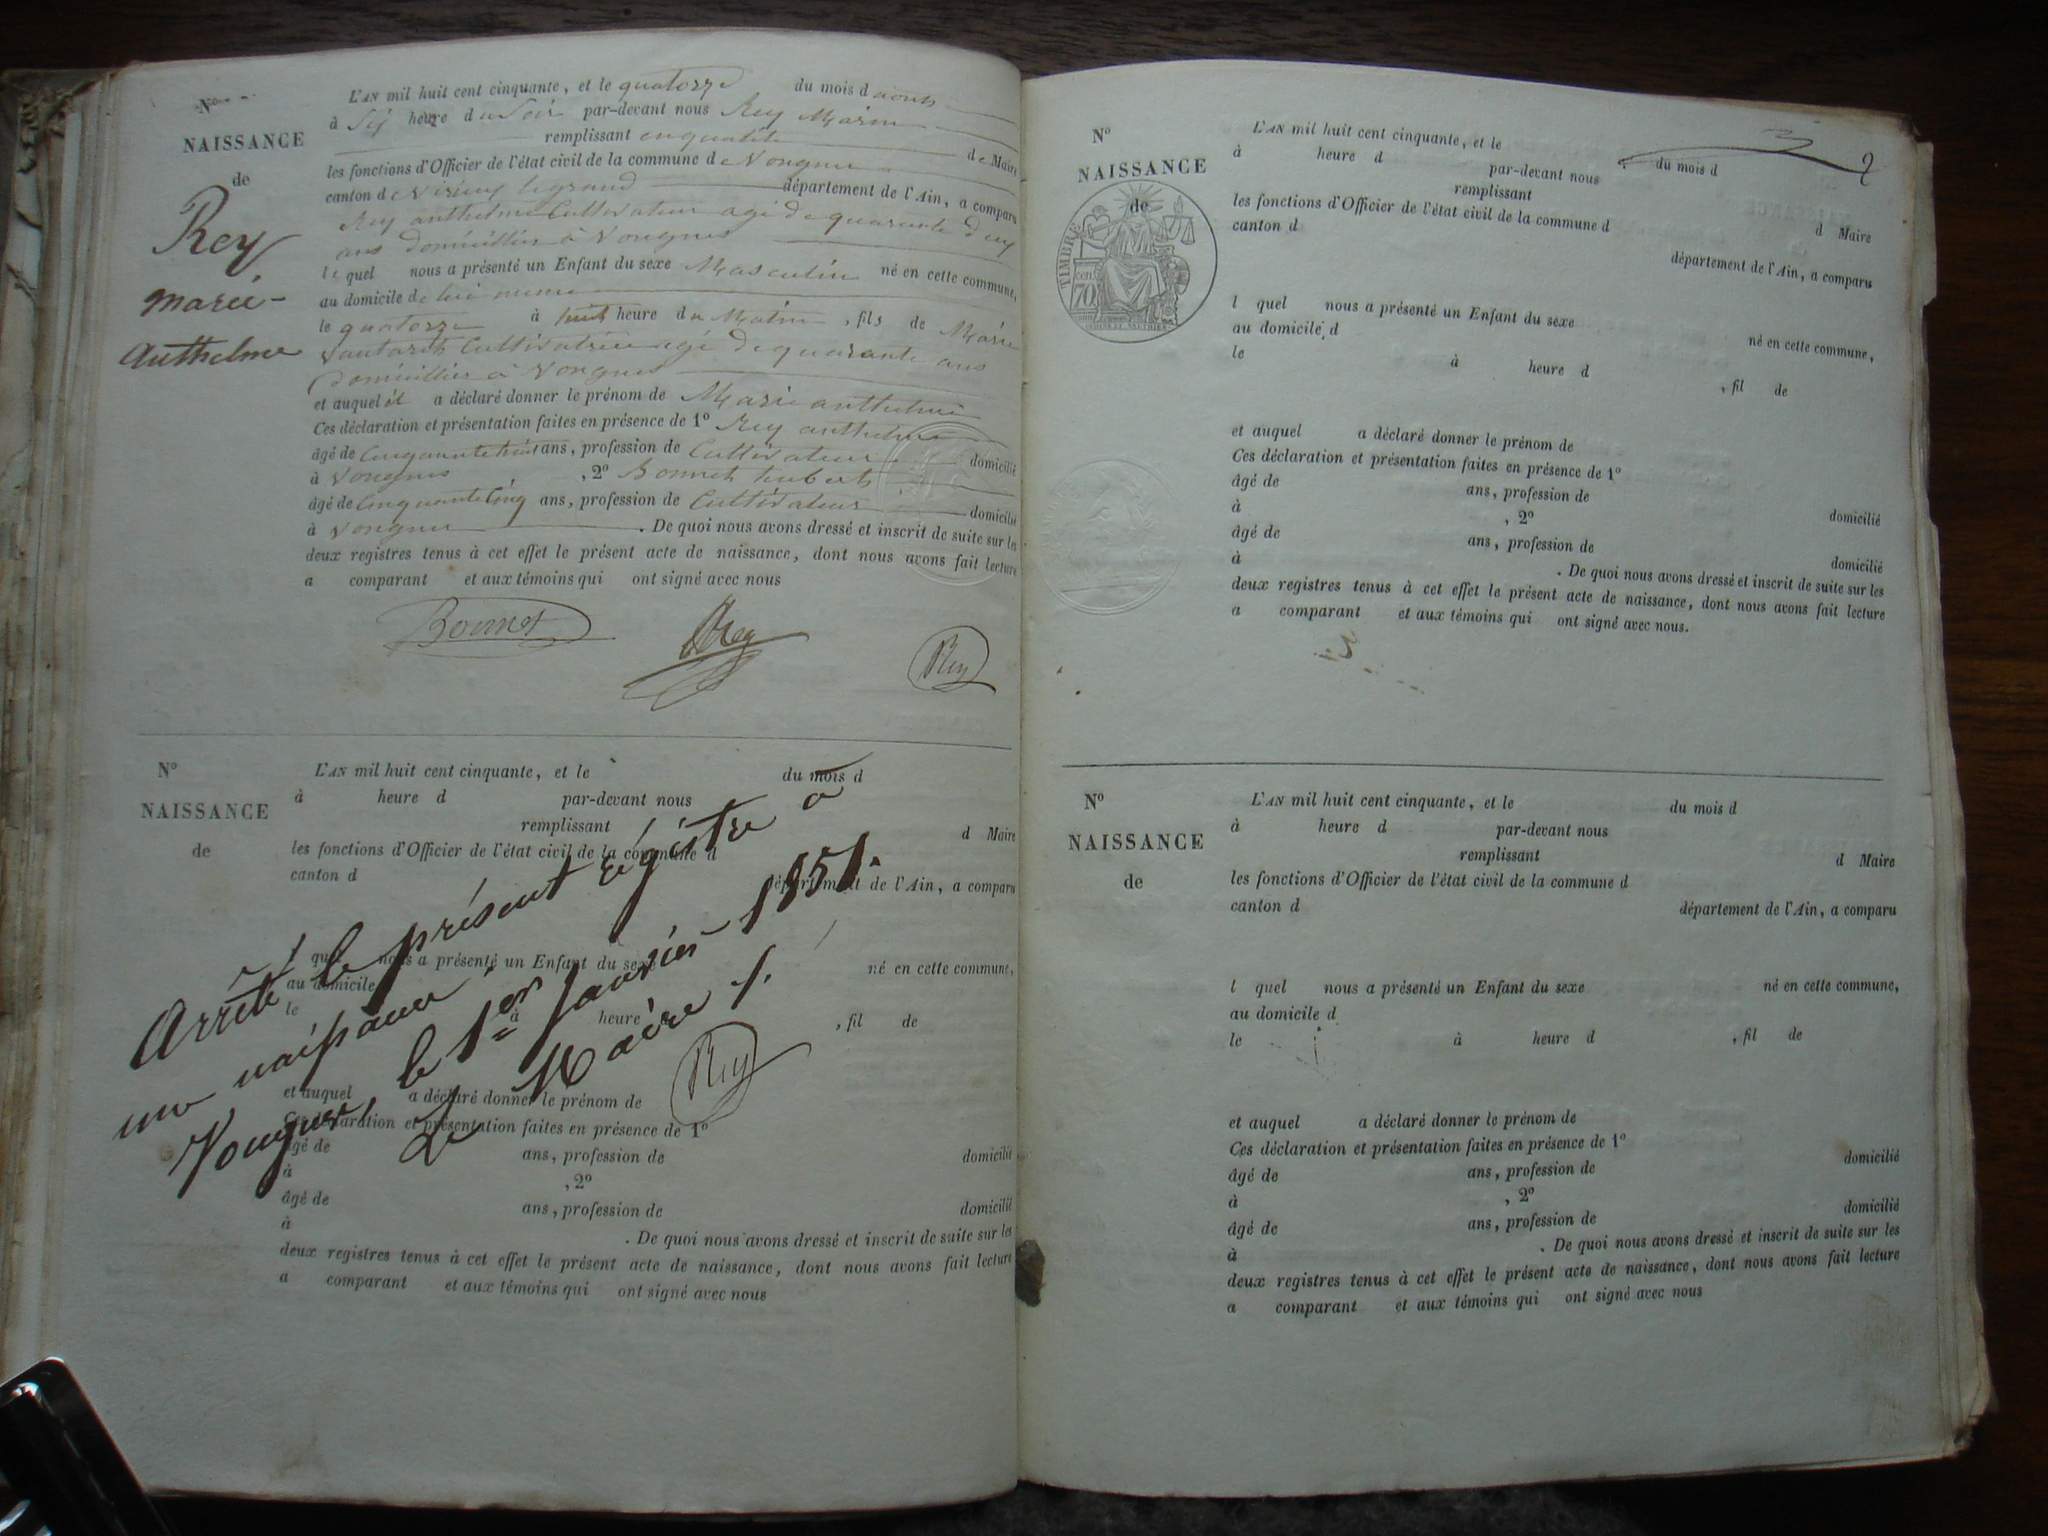 N°
NAISSANCE
de
Rey
marie-
anthelme
L'AN mil huit cent cinquante, et le quatorze du mois d aouts
à Six heure du Soir par-devant nous Rey Marin
remplissant enqualité de Maire
les fonctions d'Officier de l'état civil de la commune de Vongnes
canton de virieux legrand département de l'Ain, a comparu
Rey anthelme Cultivateur agé de quarante deux
ans domicillier à Vongnes
le quel nous a présenté un Enfant du sexe Masculin né en cette commune,
au domicile de lui meme
le quatorze à huit heure du Matin, fils de Marie
Cultivatrice agé de quarante ans
domicillier à Vongnes
et auquel il a déclaré donner le prénom de Marie anthelme
Ces déclaration et présentation faites en présence de 1° Rey anthelme
âgé de ans, profession de Cultivateur domicilié
à Vongnes, 2° Bonnet hubert
âgé de Cinquante Cinq ans, profession de Cultivateur domicilié
à Vongnes. De quoi nous avons dressé et inscrit de suite sur les
deux registres tenus à cet effet le présent acte de naissance, dont nous avons fait lecture
a comparant et aux témoins qui ont signé avec nous
Bonnet Rey Rey
N°
NAISSANCE
de
L'AN mil huit cent cinquante, et le du mois d
à heure d par-devant nous
remplissant d Maire
les fonctions d'Officier de l'état civil de la commune d
canton d département de l'Ain, a comparu
l quel nous a présenté un Enfant du sexe né en cette commune,
au domicile
le à heure , fil de
et auquel a déclaré donner le prénom de
Ces déclaration et présentation faites en présence de 1°
âgé de ans, profession de domicilié
à , 2°
âgé de ans, profession de domicilié
à . De quoi nous avons dressé et inscrit de suite sur les
deux registres tenus à cet effet le présent acte de naissance, dont nous avons fait lecture
a comparant et aux témoins qui ont signé avec nous
Arrêté le présent régistre a
une naissance.
Vongnes, le 1er Janvier 1851.
Le Maire
Rey
N°
NAISSANCE
de
TIMBRE
70 cen.
L'AN mil huit cent cinquante, et le du mois d
à heure d par-devant nous
remplissant d Maire
les fonctions d'Officier de l'état civil de la commune d
canton d département de l'Ain, a comparu
l quel nous a présenté un Enfant du sexe né en cette commune,
au domicile d
le à heure d , fil de
et auquel a déclaré donner le prénom de
Ces déclaration et présentation faites en présence de 1°
âgé de ans, profession de domicilié
à , 2°
âgé de ans, profession de domicilié
à . De quoi nous avons dressé et inscrit de suite sur les
deux registres tenus à cet effet le présent acte de naissance, dont nous avons fait lecture
a comparant et aux témoins qui ont signé avec nous.
N°
NAISSANCE
de
L'AN mil huit cent cinquante, et le du mois d
à heure d par-devant nous
remplissant d Maire
les fonctions d'Officier de l'état civil de la commune d
canton d département de l'Ain, a comparu
l quel nous a présenté un Enfant du sexe né en cette commune,
au domicile d
le à heure d , fil de
et auquel a déclaré donner le prénom de
Ces déclaration et présentation faites en présence de 1°
âgé de ans, profession de domicilié
à , 2°
âgé de ans, profession de domicilié
à . De quoi nous avons dressé et inscrit de suite sur les
deux registres tenus à cet effet le présent acte de naissance, dont nous avons fait lecture
a comparant et aux témoins qui ont signé avec nous